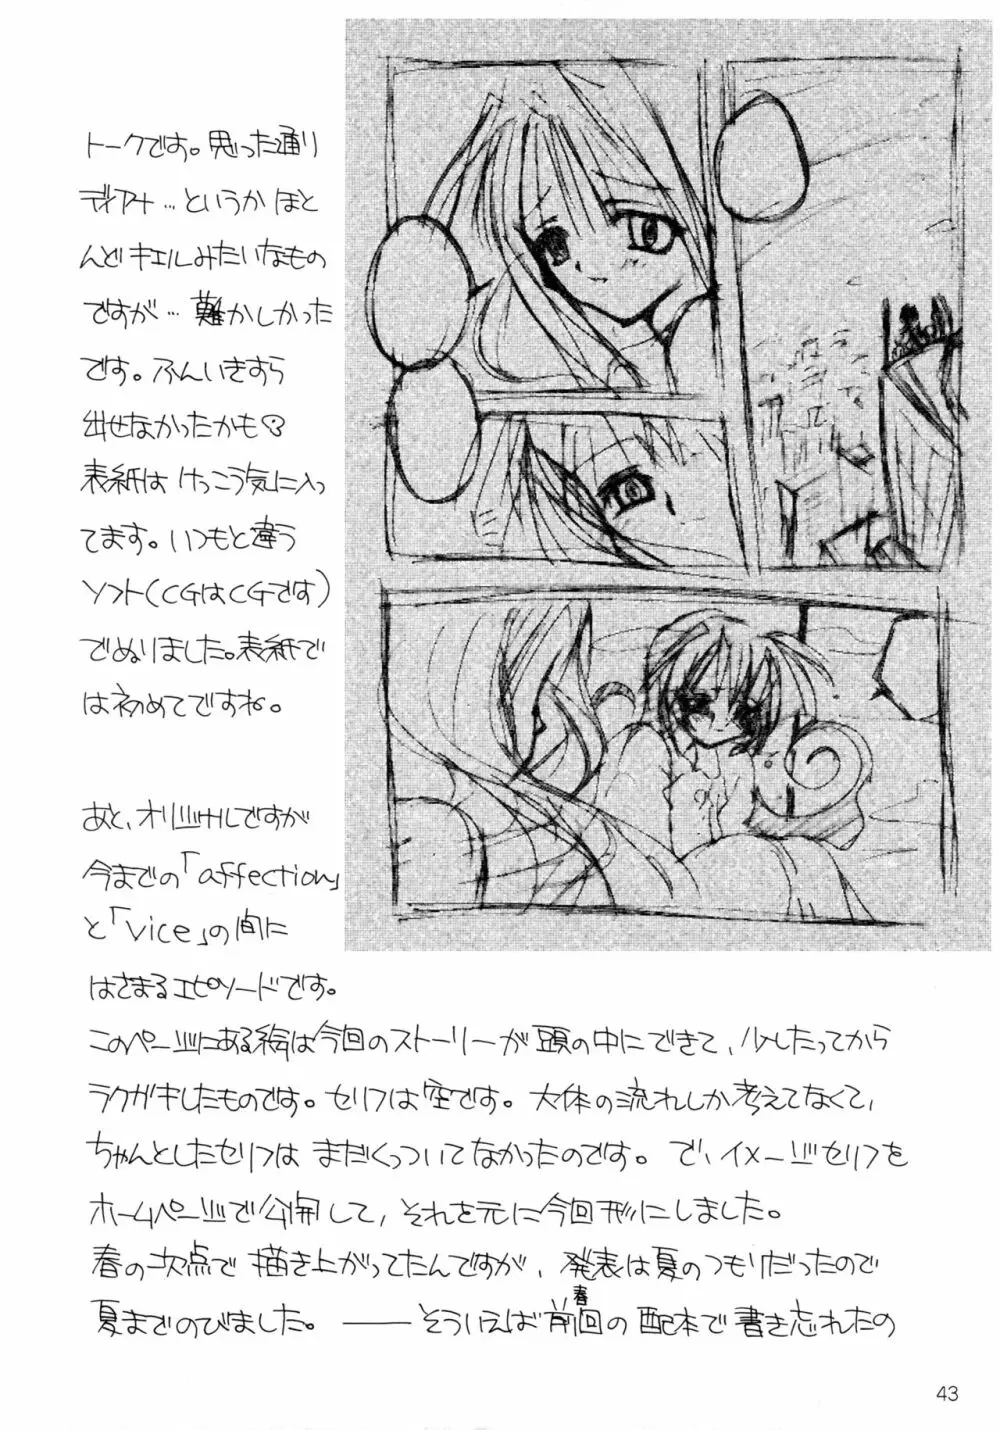 トークです。思った通り
ディアナ…というか ほと
んどキエルみたいなもの
ですが… 難かしかった
です。ふんいきすら
出せなかったかも
表紙は けっこう気に入っ
てます。いつもと違う
ソフト(CGはCGです)
でぬりました。表紙で
は初めてですね。
あと、オリジナルですが
今までの「affection」
と「vice」の間に
はさまるエピソードです。
このページにある絵は今回のストーリーが頭の中にできて、少したってから
ラクガキしたものです。セリフは空です。大体の流れしか考えてなくて、
ちゃんとしたセリフは まだくっついてなかったのです。で、イメージセリフを
ホームページで公開して、それを元に今回形にしました。
春の次点で描き上がってたんですが、発表は夏のつもりだったので
夏までのびました。——そういえば前回の配本で書き忘れたの
春
43